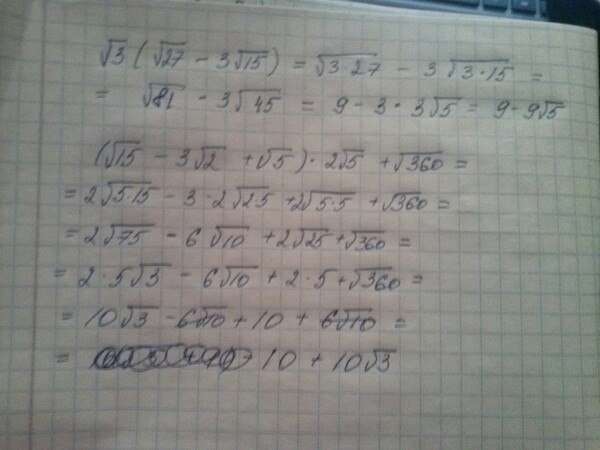 √3 (√27 - 3√15) = √3·27 - 3√3·15 =
= √81 - 3√45 = 9 - 3·3√5 = 9 - 9√5
(√15 - 3√2 + √5)·2√5 + √360 =
= 2√5·15 - 3·2√2·5 + 2√5·5 + √360 =
= 2√75 - 6√10 + 2√25 + √360 =
= 2·5√3 - 6√10 + 2·5 + √360 =
= 10√3 - 6√10 + 10 + 6√10 =
= 10 + 10√3